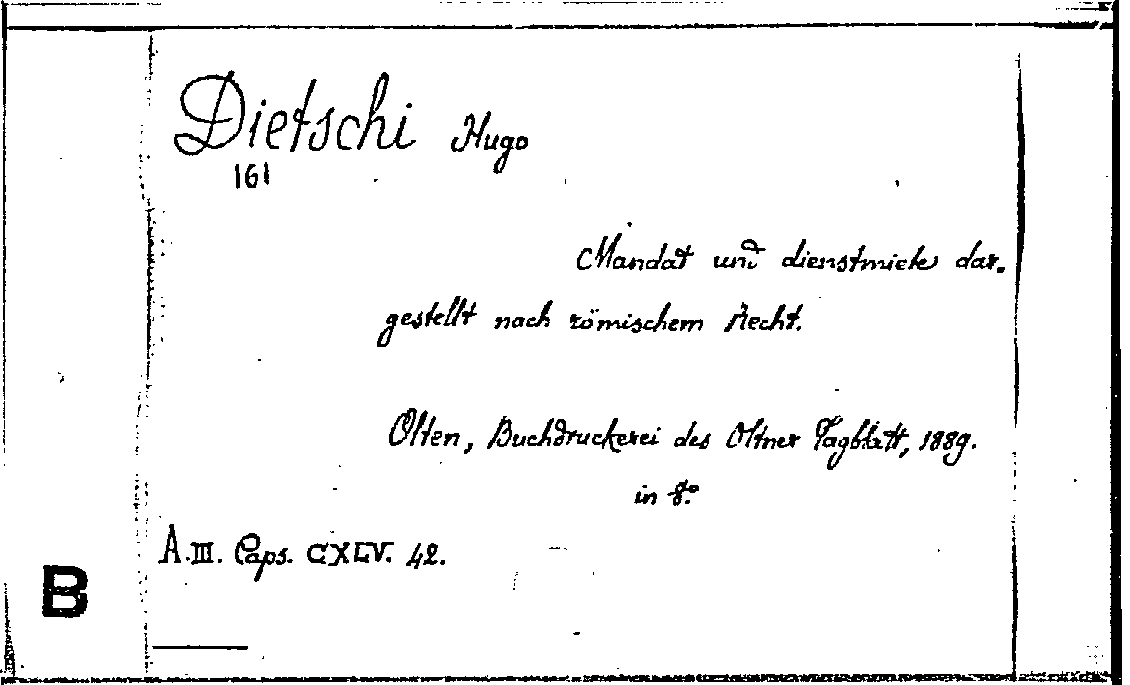 Dietschi Hugo
161
Mandat und dienstmiete dar-
gestellt nach römischem Recht.
Olten, Buchdruckerei des Oltner Tagblatt, 1889.
in 8.º
A.III. Caps. CXLV. 42.
B